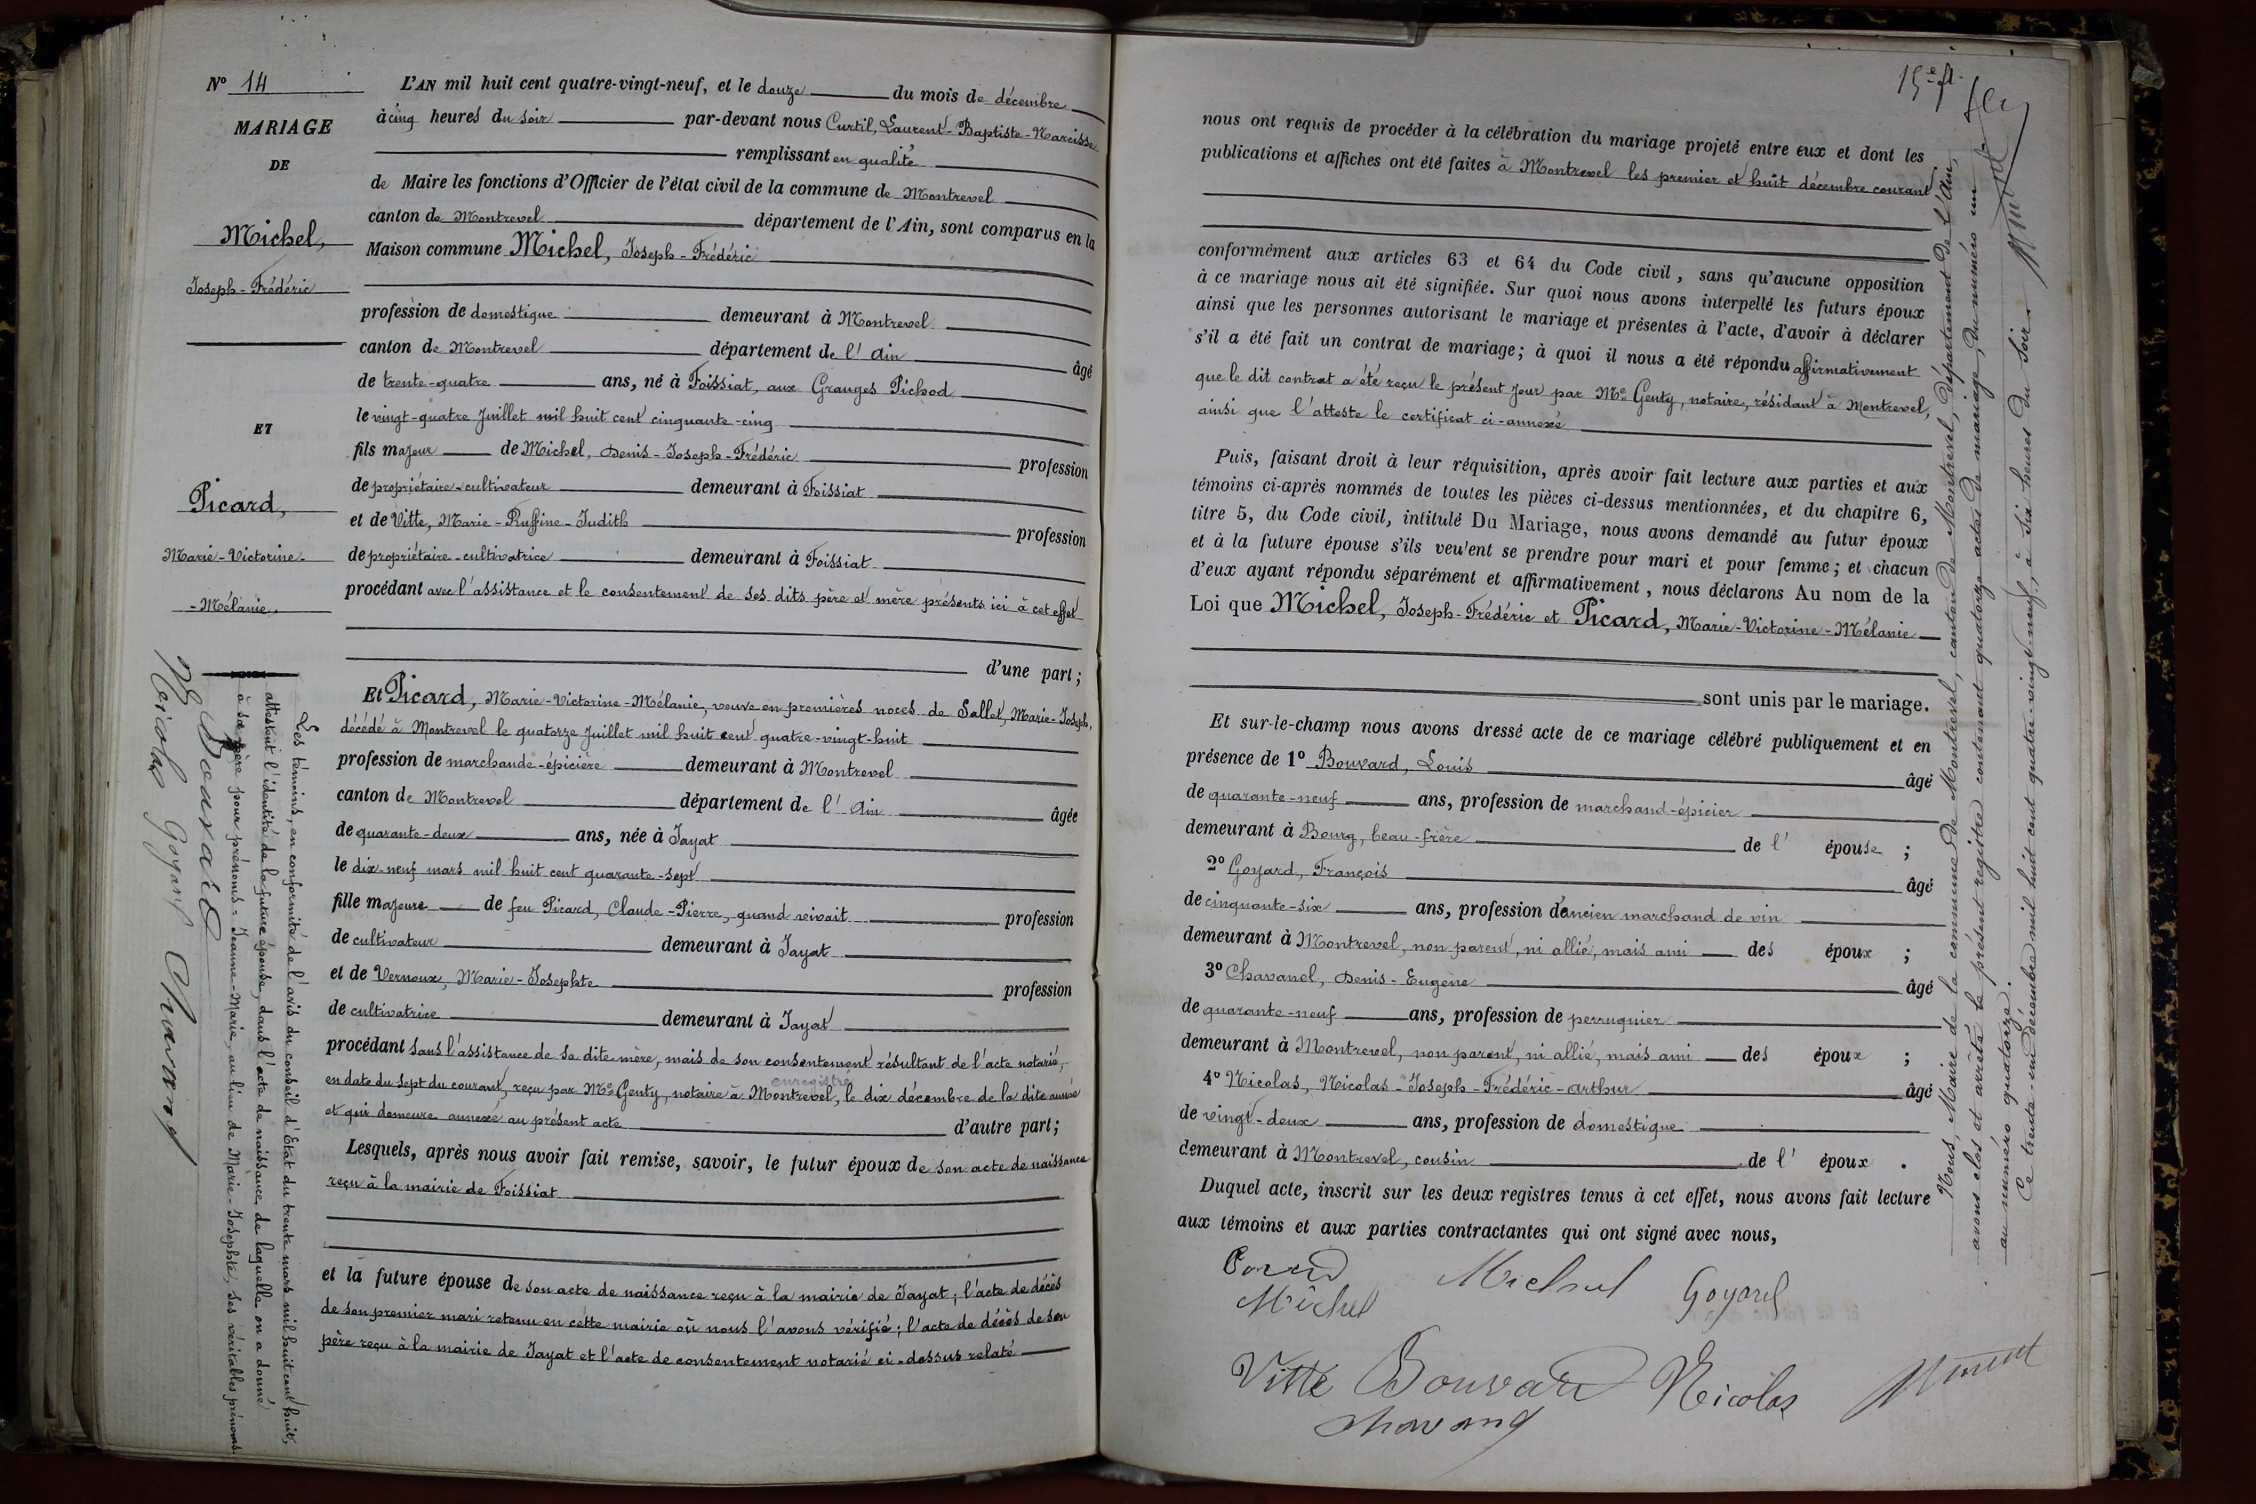 N° 14
MARIAGE
DE
Michel,
Joseph-Frédéric
ET
Picard,
Marie-Victorine-
-Mélanie.
L'AN mil huit cent quatre-vingt-neuf, et le douze du mois de décembre
à cinq heures du soir par-devant nous Curtil, Laurent-Baptiste-Narcisse
remplissant en qualité
de Maire les fonctions d'Officier de l'état civil de la commune de Montrevel
canton de Montrevel département de l'Ain, sont comparus en la
Maison commune Michel, Joseph-Frédéric
profession de domestique demeurant à Montrevel
canton de Montrevel département de l'Ain âgé
de trente-quatre ans, né à Foissiat, aux Granges Pichod
le vingt-quatre Juillet mil huit cent cinquante-cinq
fils majeur de Michel, Denis-Joseph-Frédéric profession
de propriétaire-cultivateur demeurant à Foissiat
et de Vitte, Marie-Ruffine-Judith profession
de propriétaire-cultivatrice demeurant à Foissiat
procédant avec l'assistance et le consentement de ses dits père et mère présents ici à cet effet
d'une part;
Et Picard, Marie-Victorine-Mélanie, veuve en premières noces de Sallet, Marie-Joseph,
décédé à Montrevel le quatorze Juillet mil huit cent quatre-vingt-huit
profession de marchande-épicière demeurant à Montrevel
canton de Montrevel département de l'Ain âgée
de quarante-deux ans, née à Jayat
le dix-neuf mars mil huit cent quarante-sept
fille majeure de feu Picard, Claude-Pierre, quand vivait profession
de cultivateur demeurant à Jayat
et de Vernoux, Marie-Josephte profession
de cultivatrice demeurant à Jayat
procédant sans l'assistance de sa dite mère, mais de son consentement résultant de l'acte notarié,
enregistré
en date du sept du courant, reçu par Me Genty, notaire à Montrevel, le dix décembre de la dite année
et qui demeure annexé au présent acte d'autre part;
Lesquels, après nous avoir fait remise, savoir, le futur époux de son acte de naissance
reçu à la mairie de Foissiat
et la future épouse de son acte de naissance reçu à la mairie de Jayat; l'acte de décès
de son premier mari retenu en cette mairie où nous l'avons vérifié; l'acte de décès de son
père reçu à la mairie de Jayat et l'acte de consentement notarié ci-dessus relaté
Les témoins, en conformité de l'avis du conseil d'Etat du trente mars mil huit cent huit,
attestent l'identité de la future épouse, dans l'acte de naissance de laquelle on a donné
à sa mère pour prénoms = Jeanne-Marie, au lieu de Marie-Josephte, ses véritables prénoms.
Bouvard
Nicolas Goyard Chavanel
15e f.
nous ont requis de procéder à la célébration du mariage projeté entre eux et dont les
publications et affiches ont été faites à Montrevel les premier et huit décembre courant
conformément aux articles 63 et 64 du Code civil, sans qu'aucune opposition
à ce mariage nous ait été signifiée. Sur quoi nous avons interpellé les futurs époux
ainsi que les personnes autorisant le mariage et présentes à l'acte, d'avoir à déclarer
s'il a été fait un contrat de mariage; à quoi il nous a été répondu affirmativement
que le dit contrat a été reçu le présent jour par Me Genty, notaire, résidant à Montrevel,
ainsi que l'atteste le certificat ci-annexé
Puis, faisant droit à leur réquisition, après avoir fait lecture aux parties et aux
témoins ci-après nommés de toutes les pièces ci-dessus mentionnées, et du chapitre 6,
titre 5, du Code civil, intitulé Du Mariage, nous avons demandé au futur époux
et à la future épouse s'ils veulent se prendre pour mari et pour femme; et chacun
d'eux ayant répondu séparément et affirmativement, nous déclarons Au nom de la
Loi que Michel, Joseph-Frédéric et Picard, Marie-Victorine-Mélanie
sont unis par le mariage.
Et sur-le-champ nous avons dressé acte de ce mariage célébré publiquement et en
présence de 1° Bouvard, Louis âgé
de quarante-neuf ans, profession de marchand-épicier
demeurant à Bourg, beau-frère de l'épouse;
2° Goyard, François âgé
de cinquante-six ans, profession d'ancien marchand de vin
demeurant à Montrevel, non parent, ni allié, mais ami des époux;
3° Chavanel, Denis-Eugène âgé
de quarante-neuf ans, profession de perruquier
demeurant à Montrevel, non parent, ni allié, mais ami des époux;
4° Nicolas, Nicolas-Joseph-Frédéric-Arthur âgé
de vingt-deux ans, profession de domestique
demeurant à Montrevel, cousin de l'époux.
Duquel acte, inscrit sur les deux registres tenus à cet effet, nous avons fait lecture
aux témoins et aux parties contractantes qui ont signé avec nous,
Michel Michel Goyard
Vitte Bouvard Nicolas
Nous, Maire de la commune de Montrevel, canton de Montrevel, département de l'Ain,
avons clos et arrêté le présent registre contenant quatorze actes de mariage, du numéro un
au numéro quatorze.
Ce trente-un décembre mil huit cent quatre-vingt-neuf, à six heures du soir.